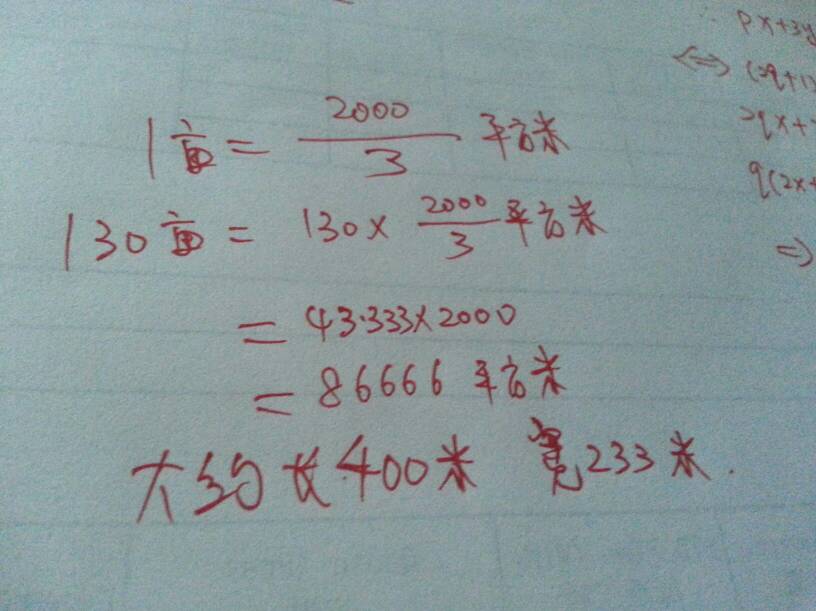 1亩 = 2000/3 平方米
130亩 = 130 × 2000/3 平方米
= 43.333×2000
= 86666 平方米
大约长400米 宽233米.
∴ px+3y
<=> (2q+1)
2qx+
q(2x+
=>